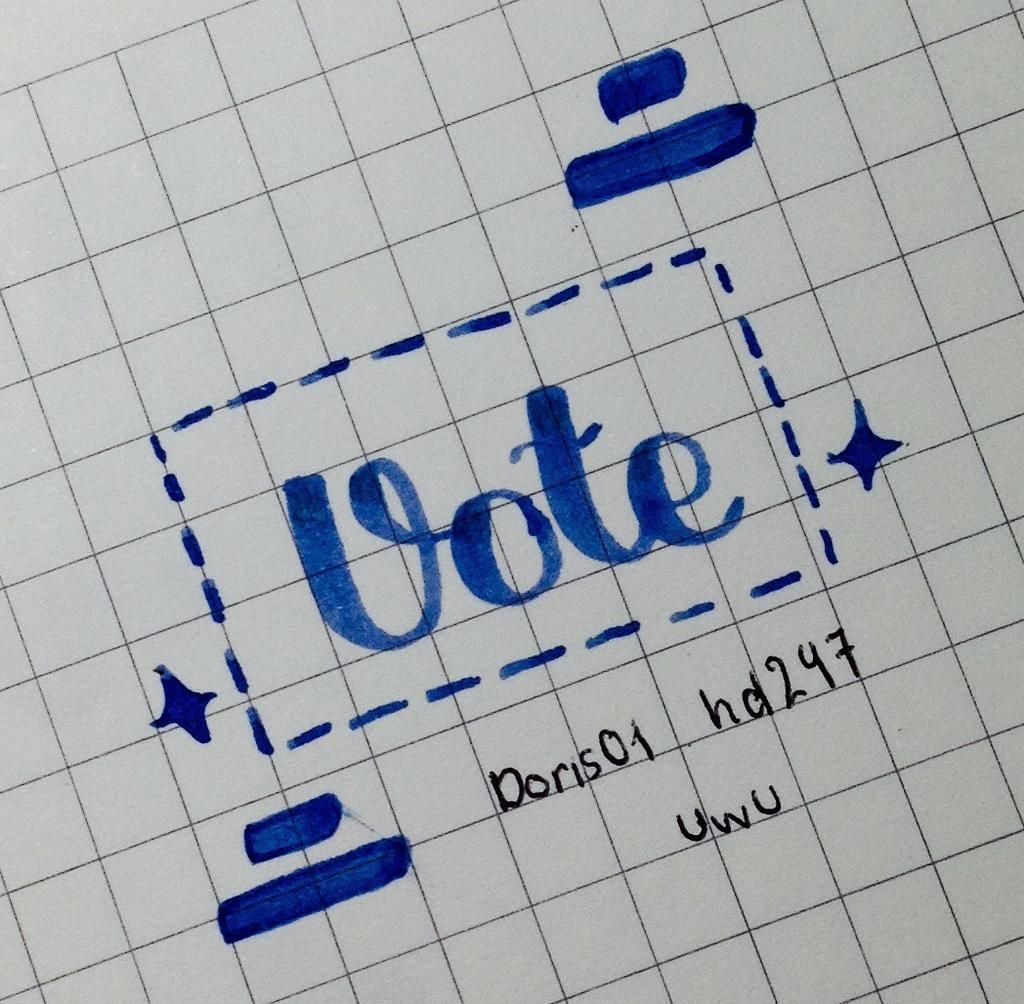 Vote
Doris01 hd247
uwu